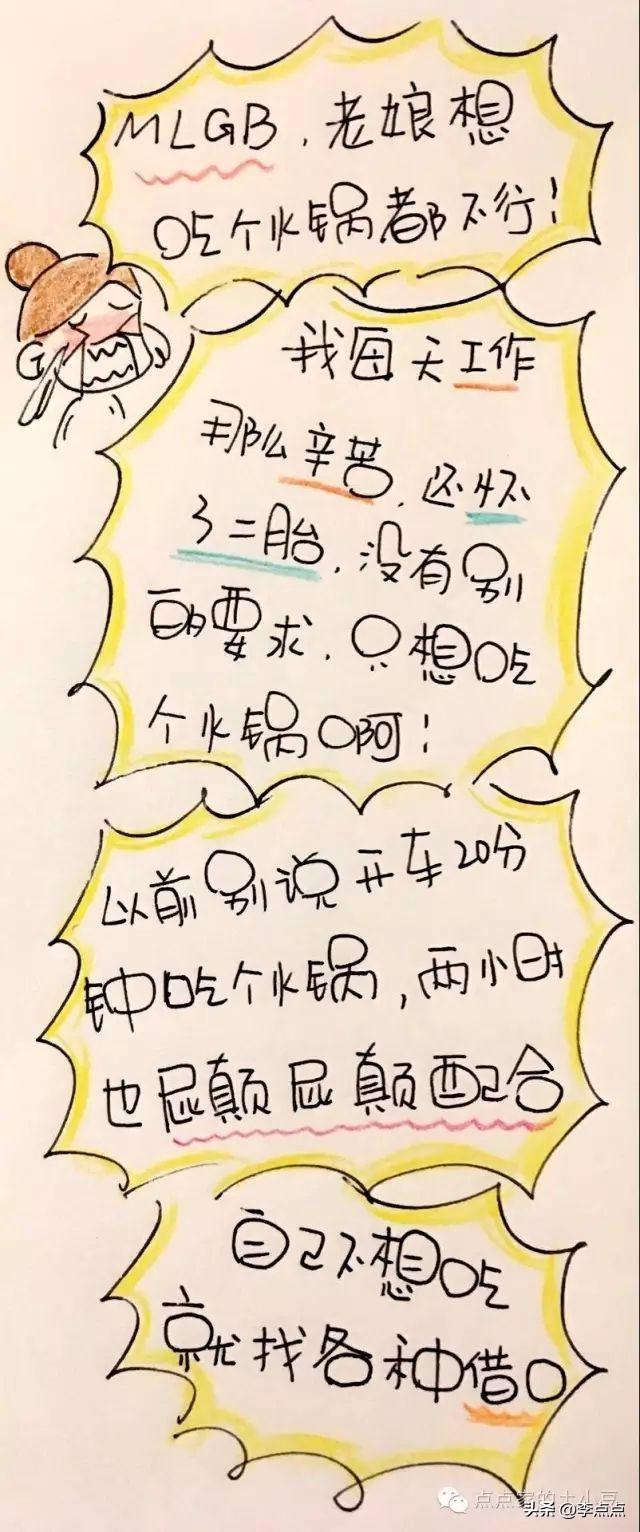 MLGB，老娘想
吃个火锅都不行！
我每天工作
那么辛苦，还怀
了二胎，没有别
的要求，只想吃
个火锅啊！
以前别说开车20分
钟吃个火锅，两小时
也屁颠屁颠配合
自己不想吃
就找各种借口
点点家的土小豆
头条 @李点点